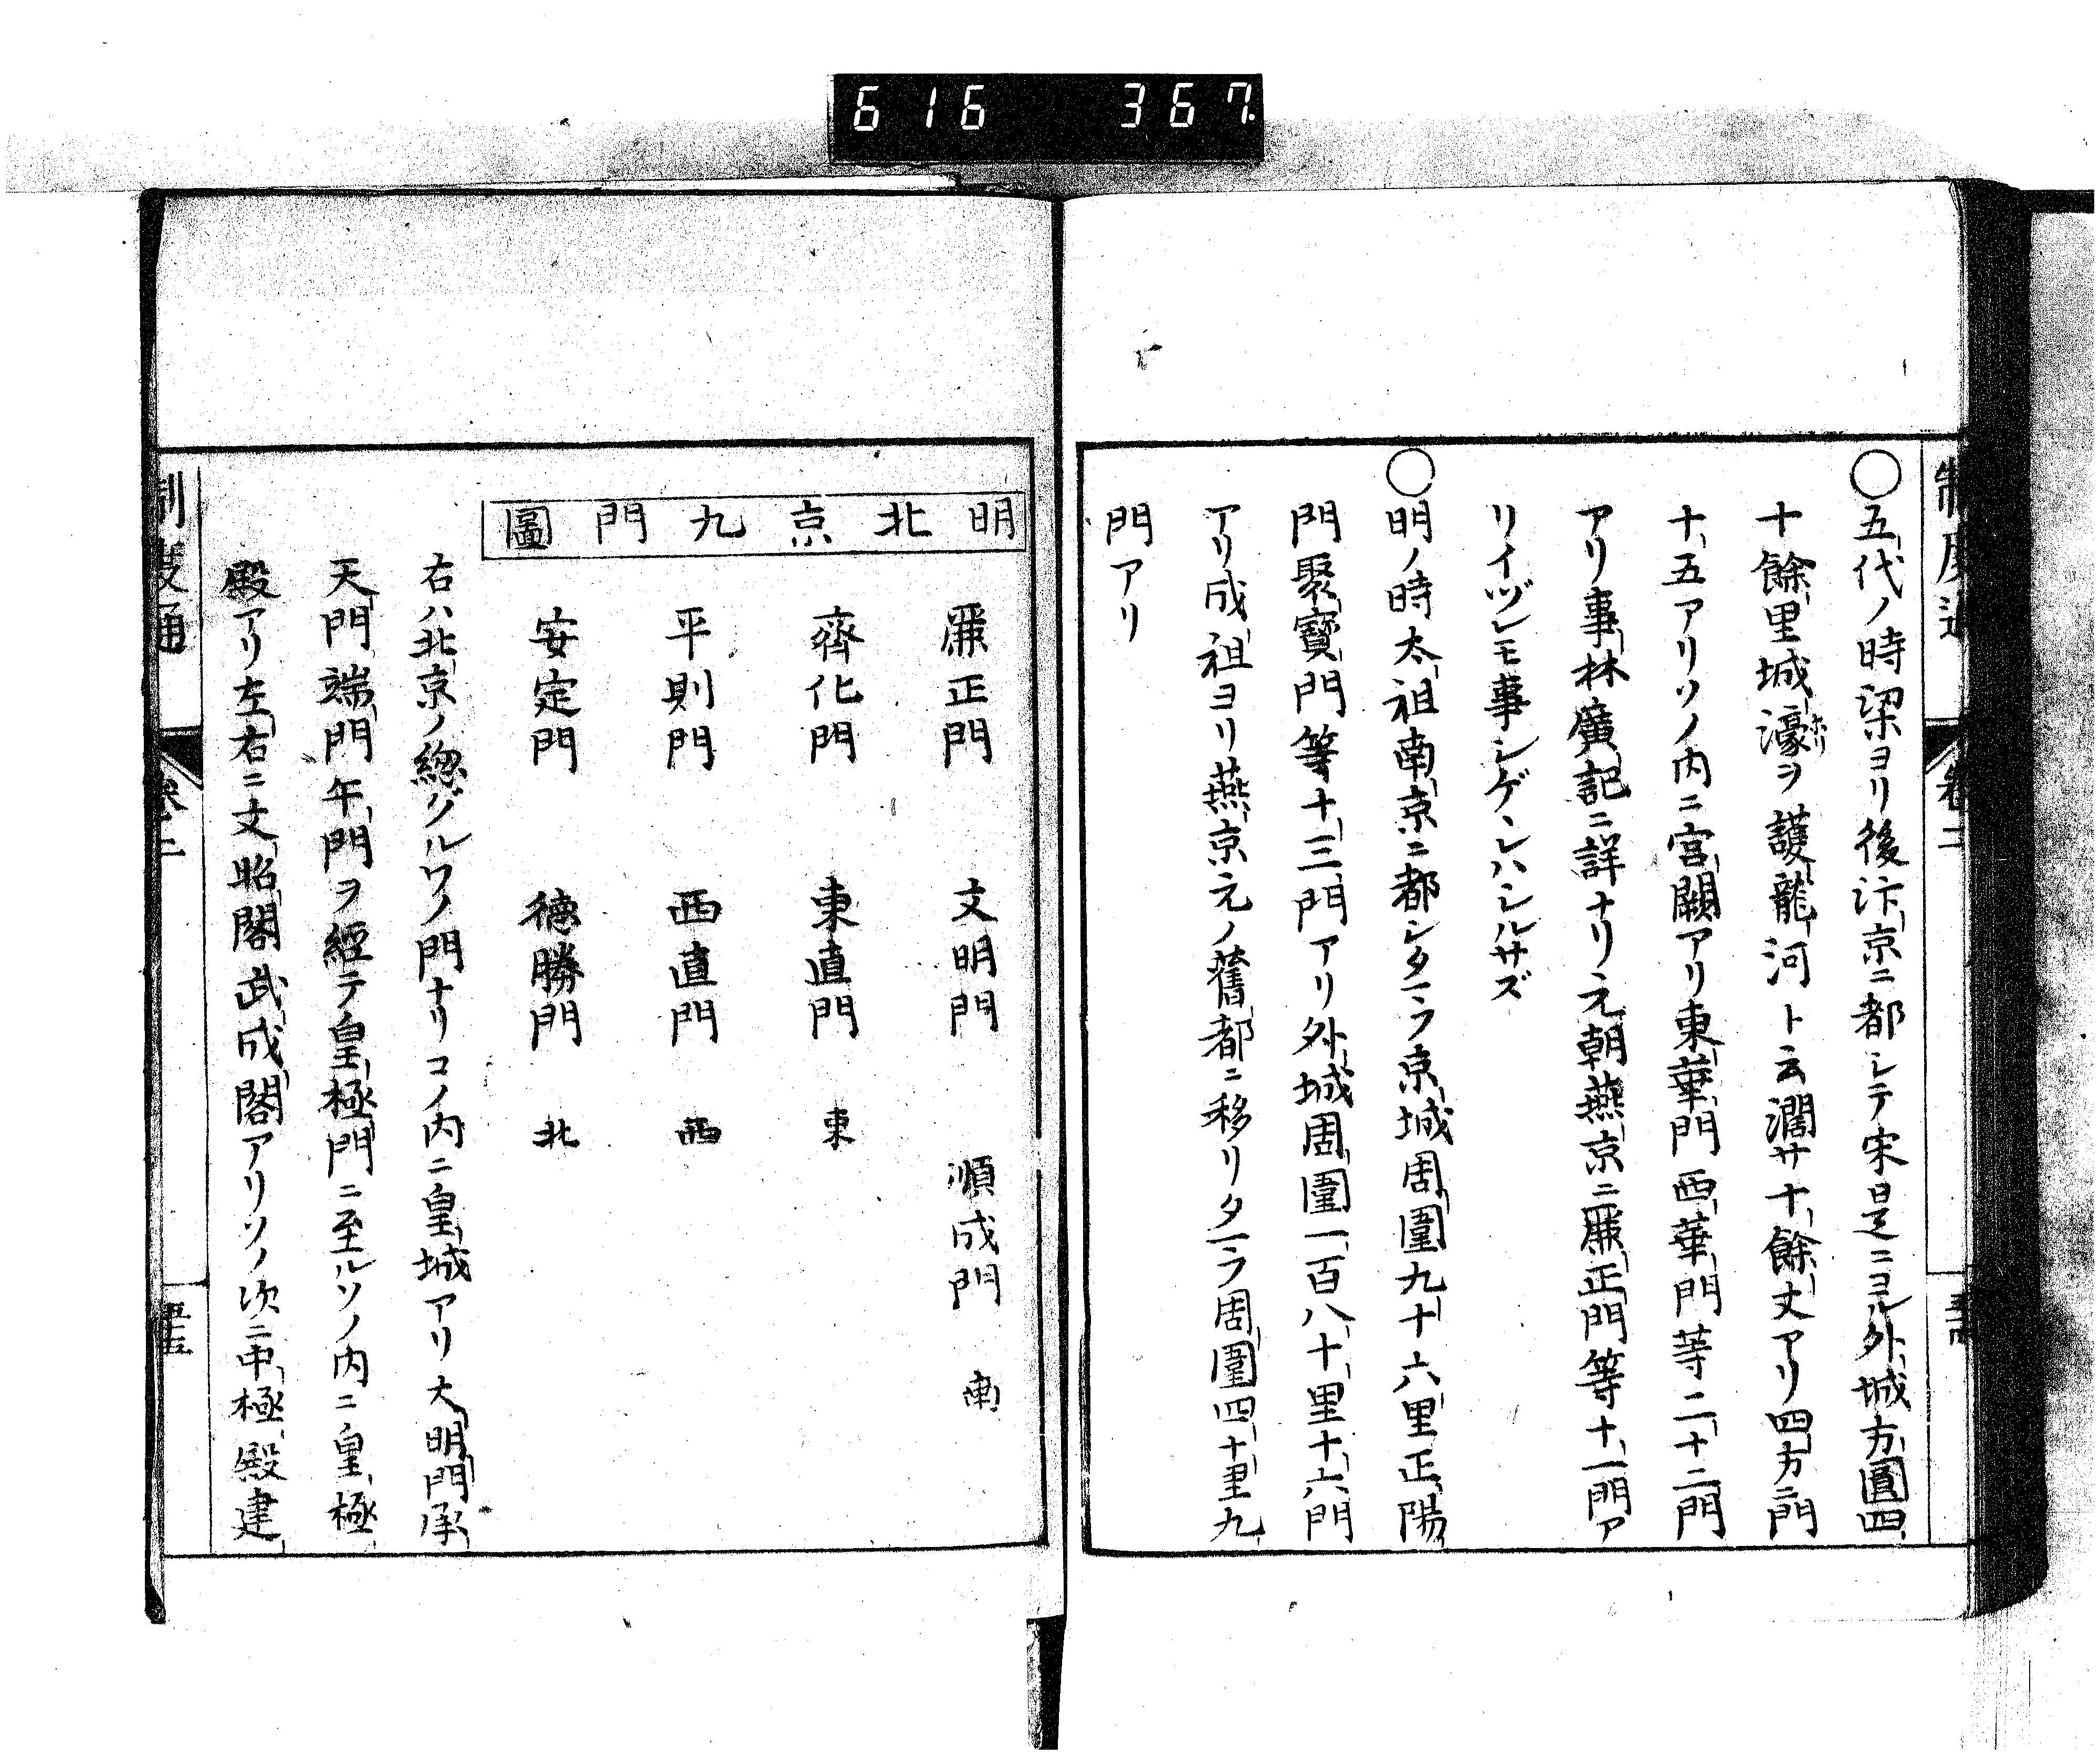 616 367
制度通 卷二
○五代ノ時梁ヨリ後汴京ニ都シテ宋是ニヨル外城方圓四
十餘里城濠ヲ護龍河ト云濶サ十餘丈アリ四方ニ門
ホリ
十五アリソノ内ニ宮闕アリ東華門西華門等二十二門
アリ事林廣記ニ詳ナリ元朝燕京ニ麗正門等十一門ア
リイヅレモ事シゲヽレハシルサズ
○明ノ時太祖南京ニ都シタマフ京城周圍九十六里正陽
門聚寳門等十三門アリ外城周圍一百八十里十六門
アリ成祖ヨリ燕京元ノ舊都ニ移リタマフ周圍四十里九
門アリ
明北京九門圖
麗正門 文明門 順成門 南
齊化門 東直門 東
平則門 西直門 西
安定門 德勝門 北
右ハ北京ノ總グルワノ門ナリコノ内ニ皇城アリ大明門承
天門端門午門ヲ經テ皇極門ニ至ルソノ内ニ皇極
殿アリ左右ニ文昭閣武成閣アリソノ次ニ中極殿建
制度通 卷二